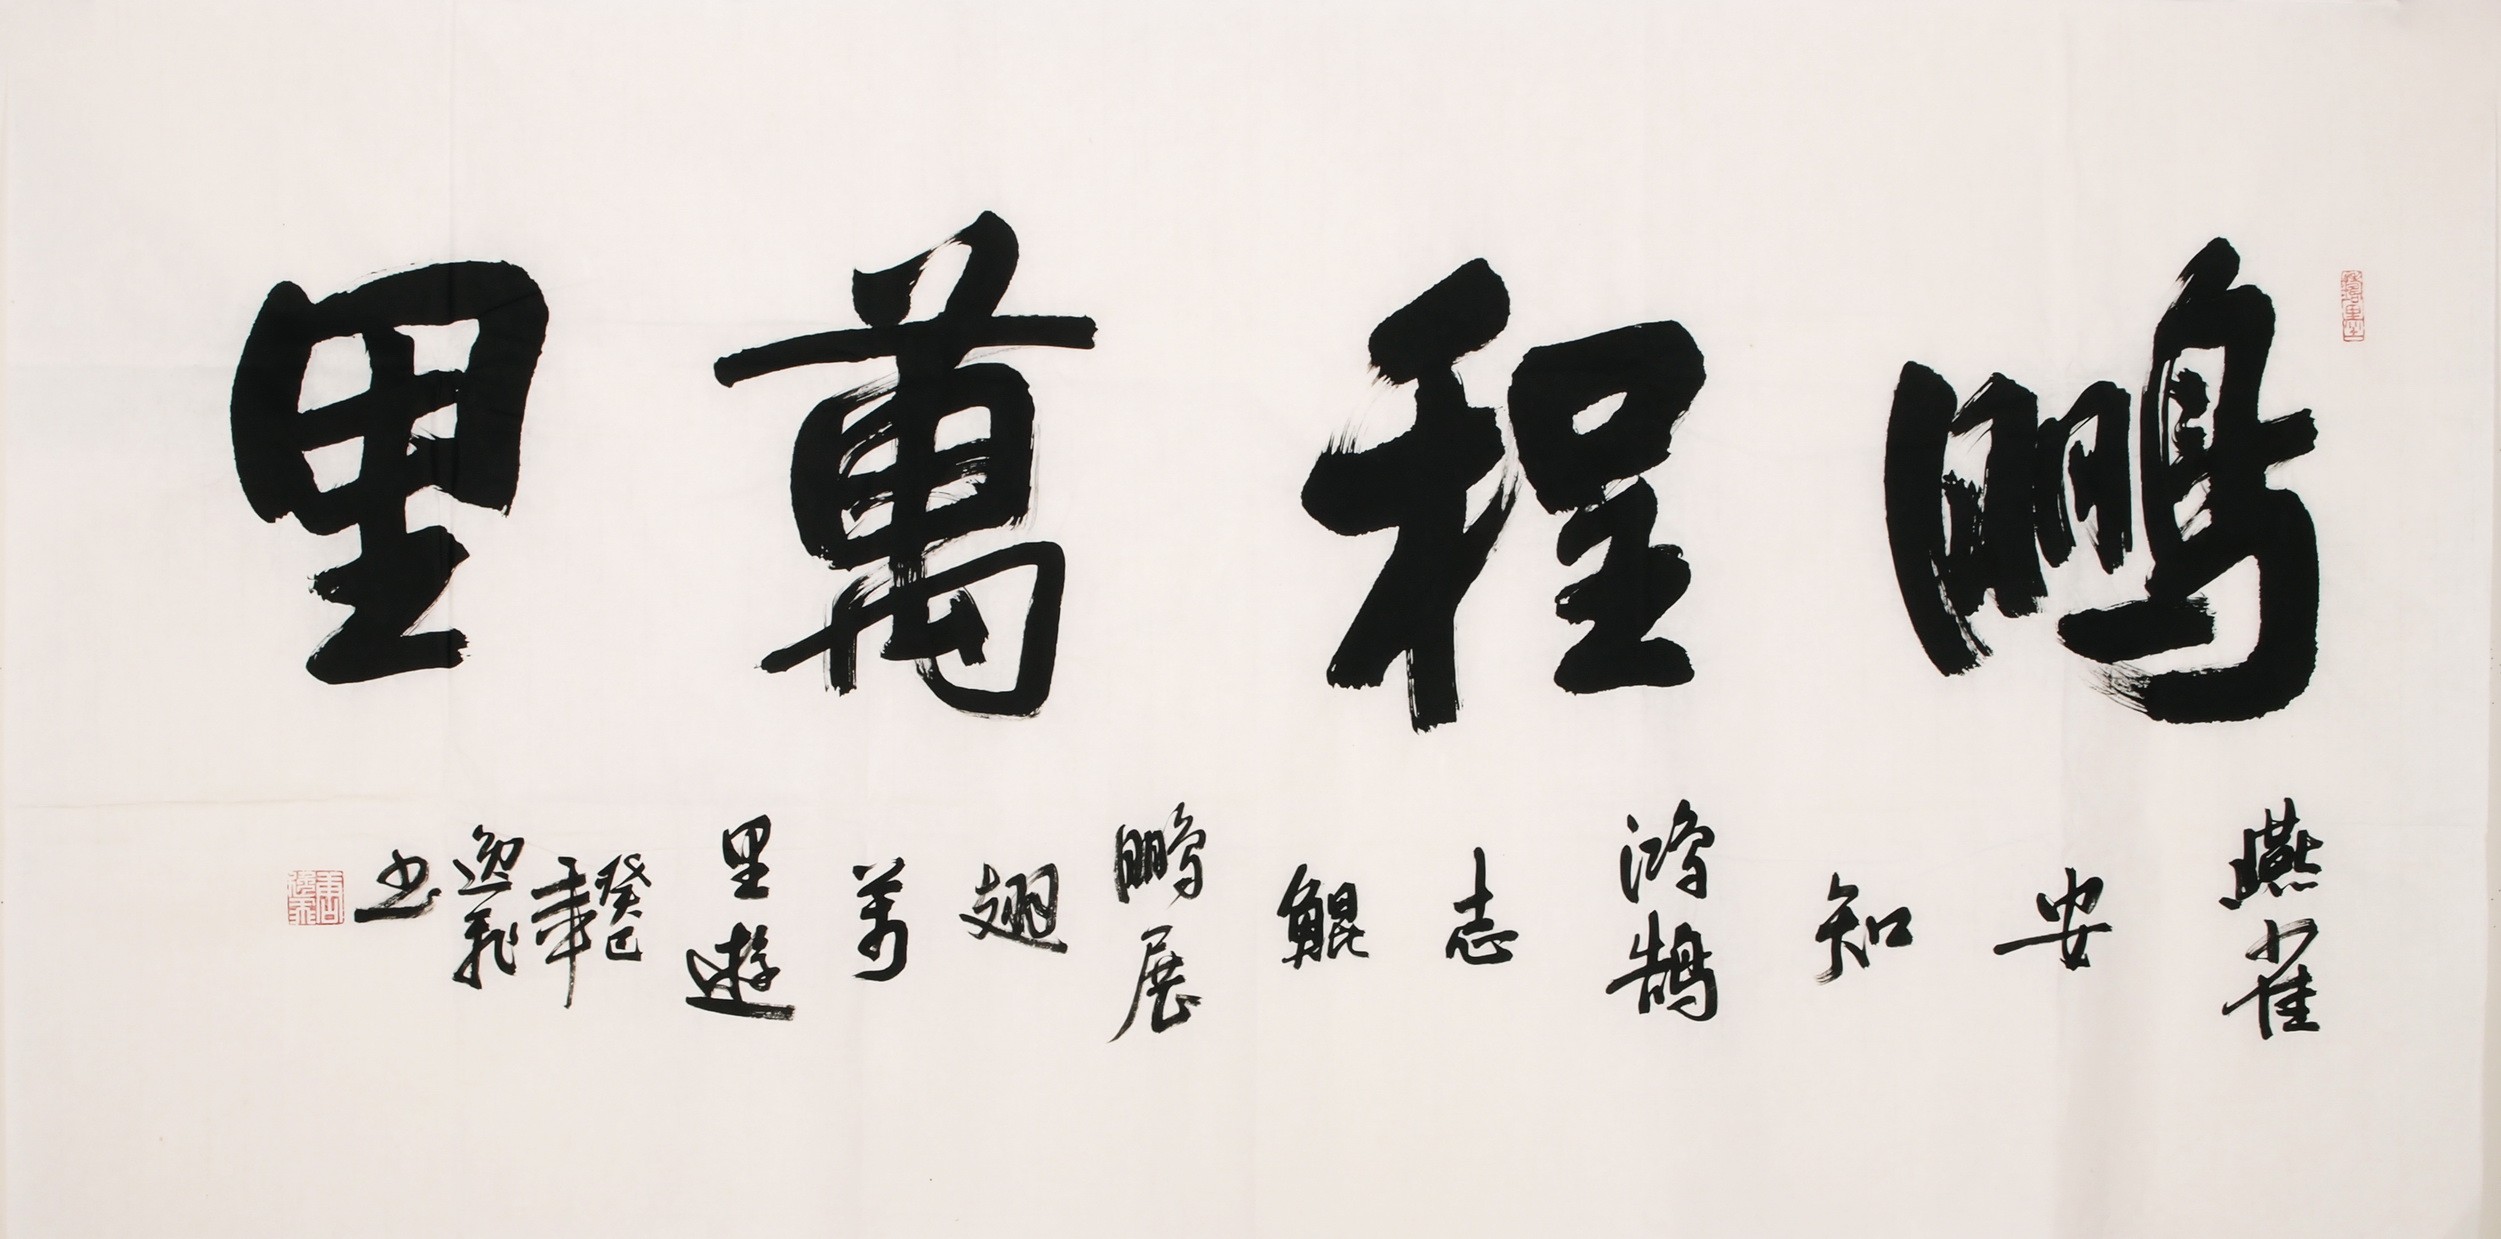 鵬程萬里
燕雀
安
知
鴻鹄
志
鯤
鵬展
翅
萬
里遊
癸巳
年
逸飛
书